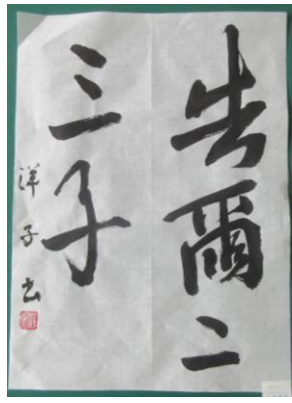 告爾二
三子
洋子书